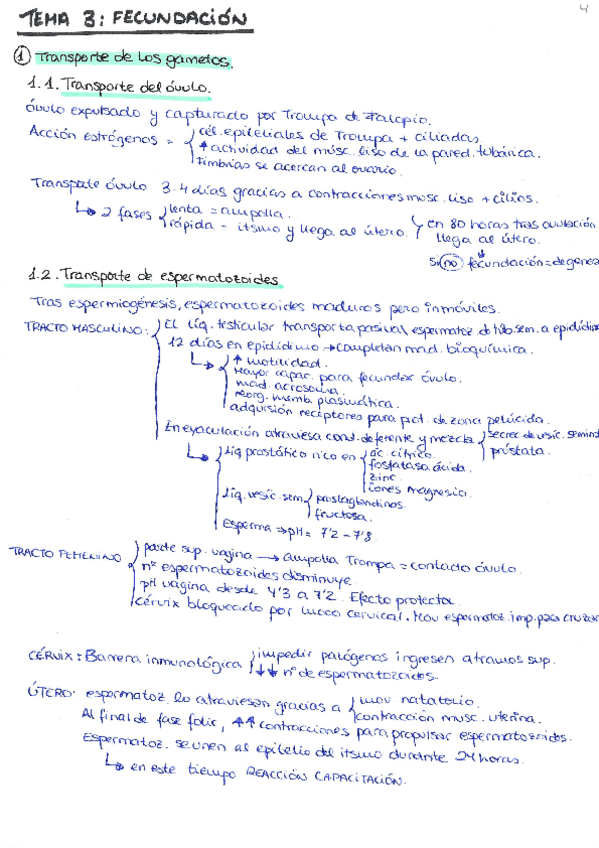 4
TEMA 3: FECUNDACIÓN
① Transporte de los gametos.
1.1. Transporte del óvulo.
óvulo expulsado y capturado por Trompa de Falopio.
Acción estrógenos = cél. epiteliales de Trompa + ciliadas
↑ actividad del músc. liso de la pared tubárica.
Fimbrias se acercan al ovario.
Transporte óvulo 3-4 días gracias a contracciones musc. liso + cilios.
↳ 2 fases lenta = ampolla.
rápida - itsmo y llega al útero.
en 80 horas tras ovulación
llega al útero.
si no fecundación = degenera
1.2. Transporte de espermatozoides
Tras espermiogénesis, espermatozoides maduros pero inmóviles.
TRACTO MASCULINO: El líq. testicular transporta pasival espermatoz. de túb. sem. a epidídimo
12 días en epidídimo → completan mad. bioquímica.
↳ ↑ motilidad.
Mayor capac. para fecundar óvulo.
mad. acrosoma.
reorg. memb. plasmática.
adquisión receptores para prot. de zona pelúcida.
En eyaculación atraviesa cond. deferente y mezcla secrec. de vesíc. semin
próstata.
↳ líq prostático rico en ác. cítrico.
fosfatasa ácida.
zinc.
iones magnesio.
líq. vesíc. sem. prostaglandinas
fructosa.
Esperma → pH = 7'2 - 7'8
TRACTO FEMENINO parte sup. vagina → ampolla Trompa = contacto óvulo.
nº espermatozoides disminuye.
pH vagina desde 4'3 a 7'2. Efecto protector
Cérvix bloqueado por moco cervical. Mov espermatoz. imp. para cruzar
CÉRVIX: Barrera inmunológica impedir patógenos ingresen a tramos sup.
↓↓ nº de espermatozoides.
ÚTERO: espermatoz. lo atraviesan gracias a mov natatorio.
contracción musc. uterina.
Al final de fase folic, ↑↑ contracciones para propulsar espermatozoides.
Espermatoz. se unen al epitelio del itsmo durante 24 horas.
↳ en este tiempo REACCIÓN CAPACITACIÓN.